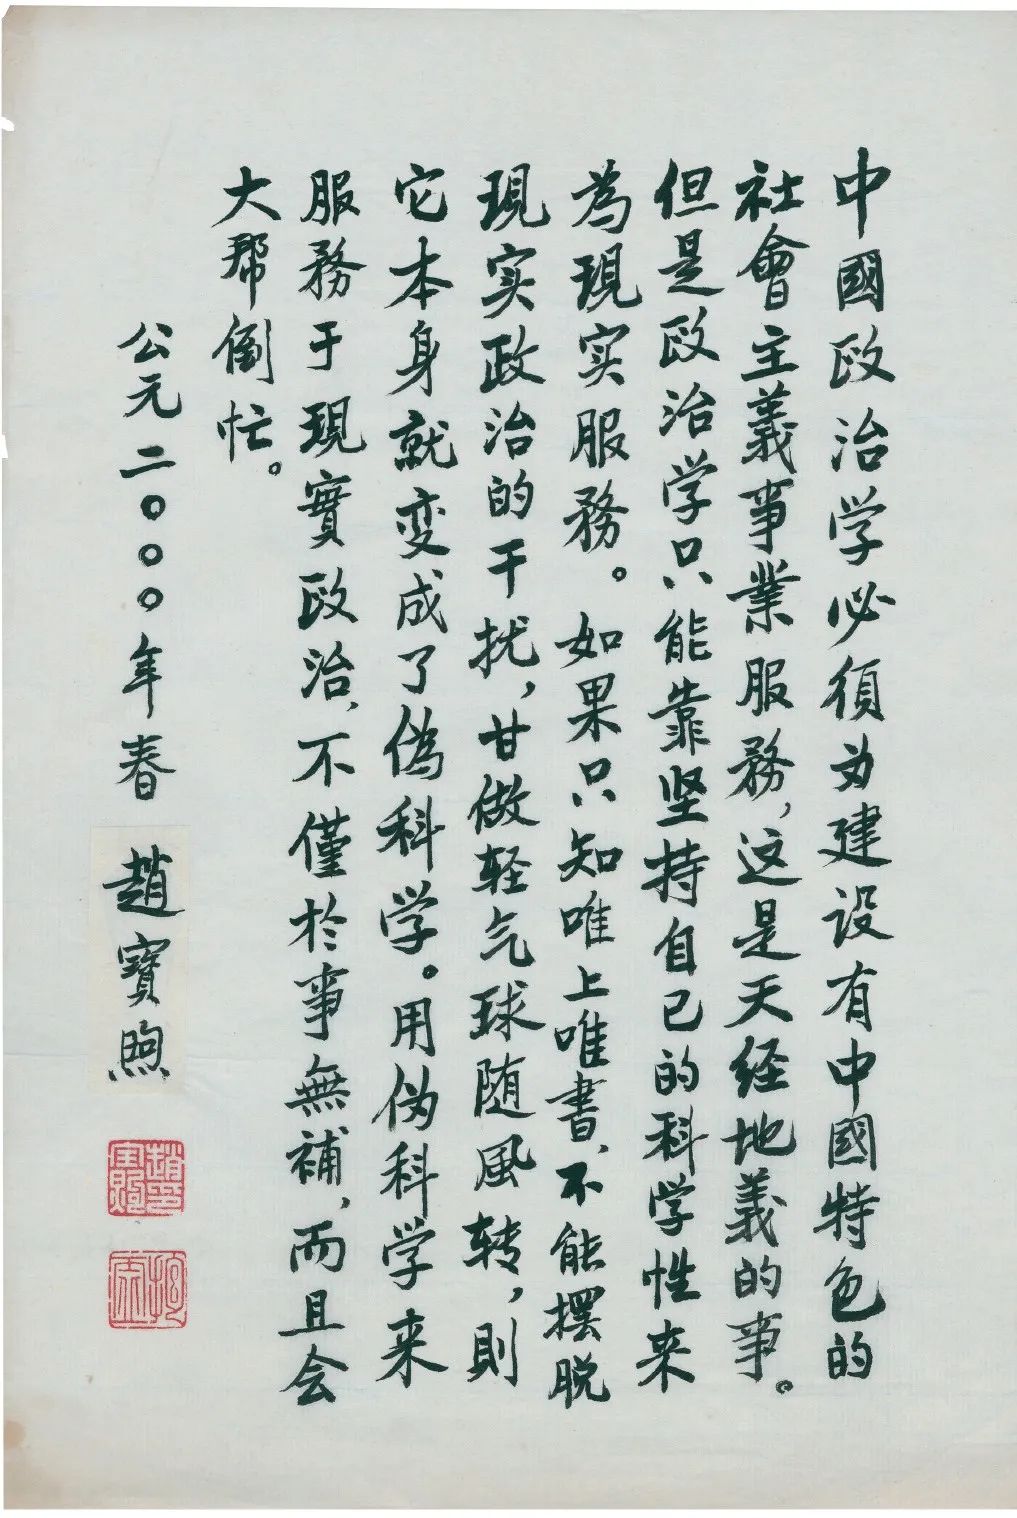 中國政治学必須为建设有中國特色的
社會主義事業服務，这是天经地義的事。
但是政治学只能靠坚持自己的科学性来
為現实服務。如果只知唯上唯書、不能摆脱
現实政治的干扰，甘做轻气球随風转，則
它本身就变成了偽科学。用伪科学来
服務于現實政治，不僅於事無補，而且会
大帮倒忙。
公元二〇〇〇年春
趙寶煦